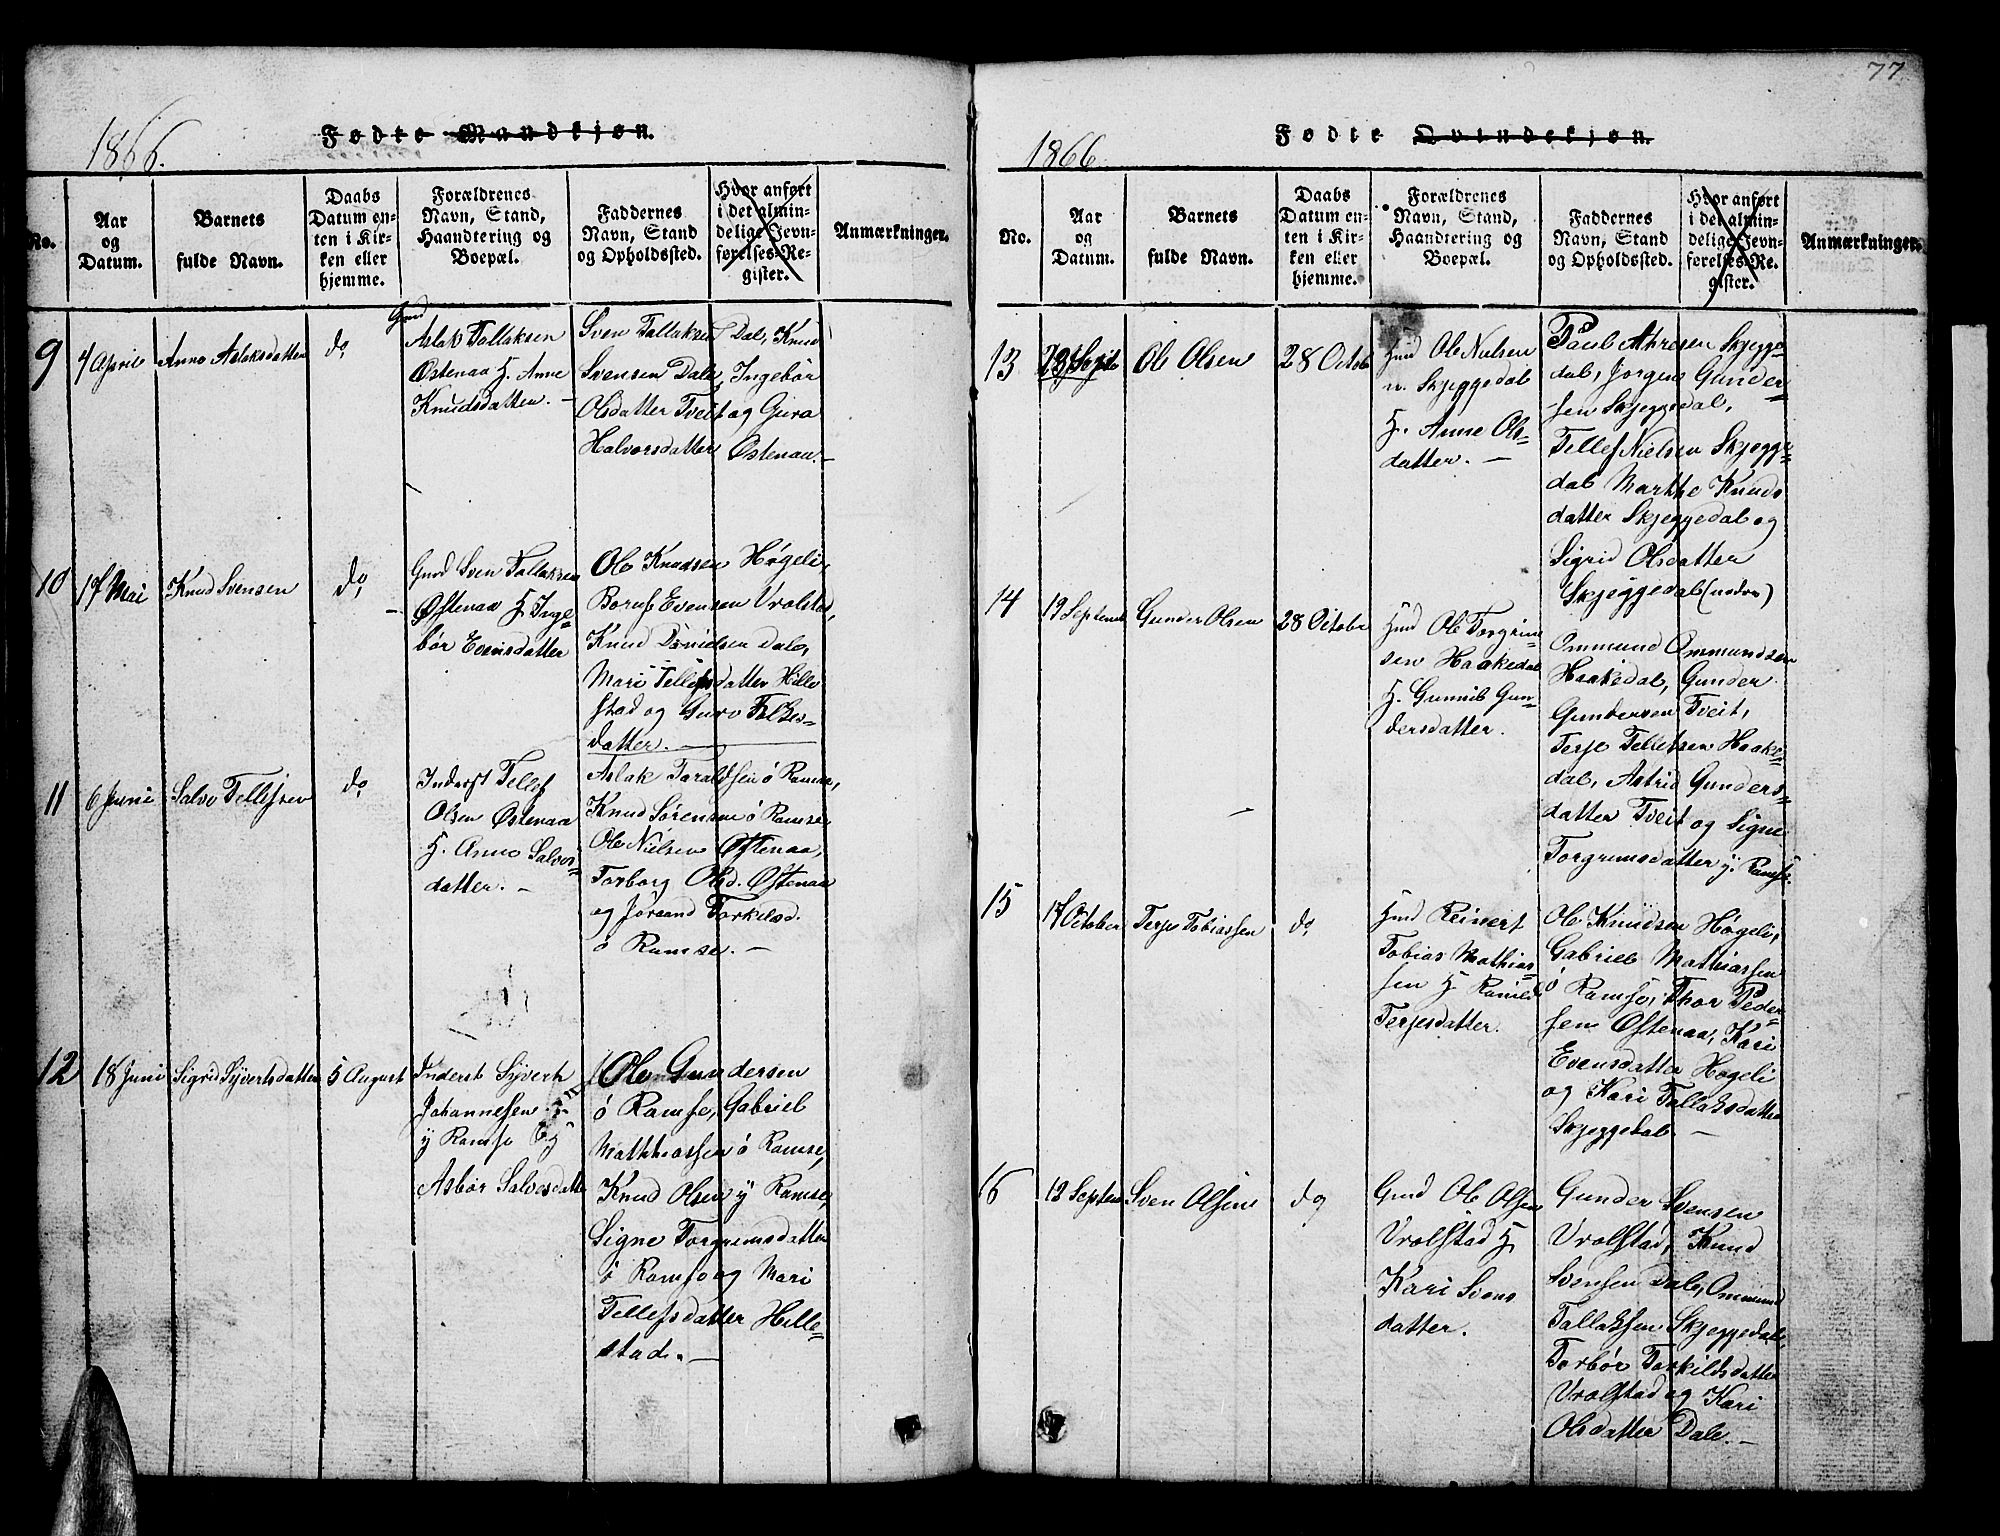 1866.
Fødte Mandkjøn.
No.
Aar og Datum.
Barnets fulde Navn.
Daabs Datum enten i Kirken eller hjemme.
Forældrenes Navn, Stand, Haandtering og Boepæl.
Faddernes Navn, Stand og Opholdssted.
Hvor anført i det almindelige Jevnførelses-Register.
Anmærkninger.
9
4 April
Anne Aslaksdatter
do
Gmd
Aslak Tallaksen
Østenaa H. Anne
Knudsdatter. –
Sven Tallaksen Dal, Knud
Svensen Dale, Ingebør
Olsdatter Tveit og Guro
Halvorsdatter Østenaa. –
10
17 Mai
Knud Svensen
do
Gmd Sven Tallaksen
Østenaa H. Inge-
bør Evensdatter
Ole Knudsen Høgeli,
Evensen Vrolstad,
Knud Dale,
Mari Tellefsdatter Hille
stad og Guro
datter. –
11
6 Juni
Salve Tellefsen
do
Inderst Tellef
Olsen Østenaa
H. Anne Salves-
datter. –
Aslak Taraldsen ö Ramse,
Knud Sørensen ö Ramse
Ole Nielsen Østenaa,
Torborg Olsd. Østenaa
og Jørand Torkelsd.
ö Ramse. –
12
18 Juni
Sigrid Syvertsdatter
5 August
Inderst Syvert
Johannesen
y Ramse
Asbør Salvesdatter
Ole Gundersen
ö Ramse, Gabriel
Mathiassen ö Ramse,
Knud Olsen y Ramse,
Signe Torgrimsdatter
ö Ramse og Mari
Tellefsdatter Hille-
stad. –
77
1866
Fødte Qvindekjøn.
No.
Aar og Datum.
Barnets fulde Navn.
Daabs Datum enten i Kirken eller hjemme.
Forældrenes Navn, Stand, Haandtering og Boepæl.
Faddernes Navn, Stand og Opholdssted.
Hvor anført i det almindelige Jevnførelses-Register.
Anmærkninger.
13
Sept
Ole Olsen
28 Octob
Hmd Ole Nielsen
n. Skjeggedal
H. Anne Ols-
datter. –
Paul Skjegge-
dal, Jørgen Gunder-
sen Skjeggedal,
Tellef Nielsen Skjegge-
dal Marthe Knuds
datter Skjeggedal og
Sigrid Olsdatter
Skjeggedal (nedre)
14
19 Septemb
Gunder Olsen
28 Octobr
Hmd Ole Torgrim-
sen Haakedal
H. Gunnil Gun-
dersdatter.
Ommund Ommundsen
Haakedal, Gunder
Gundersen Tveit,
Terje Tellefsen Haake-
dal, Astrid Gunders-
datter Tveit og Signe
Torgrimsdatter y. Ramse.
15
17 October
Terje Tobiassen
do
Hmd Reinert
Tobias Mathias-
sen H. Ramild
Terjesdatter.
Ole Knudsen Høgeli,
Gabriel Mathiassen
ö Ramse, Thor Peder-
sen Østenaa, Kari
Evensdatter Høgeli
og Kari Tallaksdatter
Skjeggedal. –
16
12 Septem
Sven Olsen
do
Gmd Ole Olsen
Vrolstad H.
Kari Svens
datter.
Gunder Svensen
Vrolstad, Knud
Svensen Dale, Ommund
Tallaksen Skjeggedal,
Torbør Torkildsdatter
Vrolstad og Kari
Olsdatter Dale. –